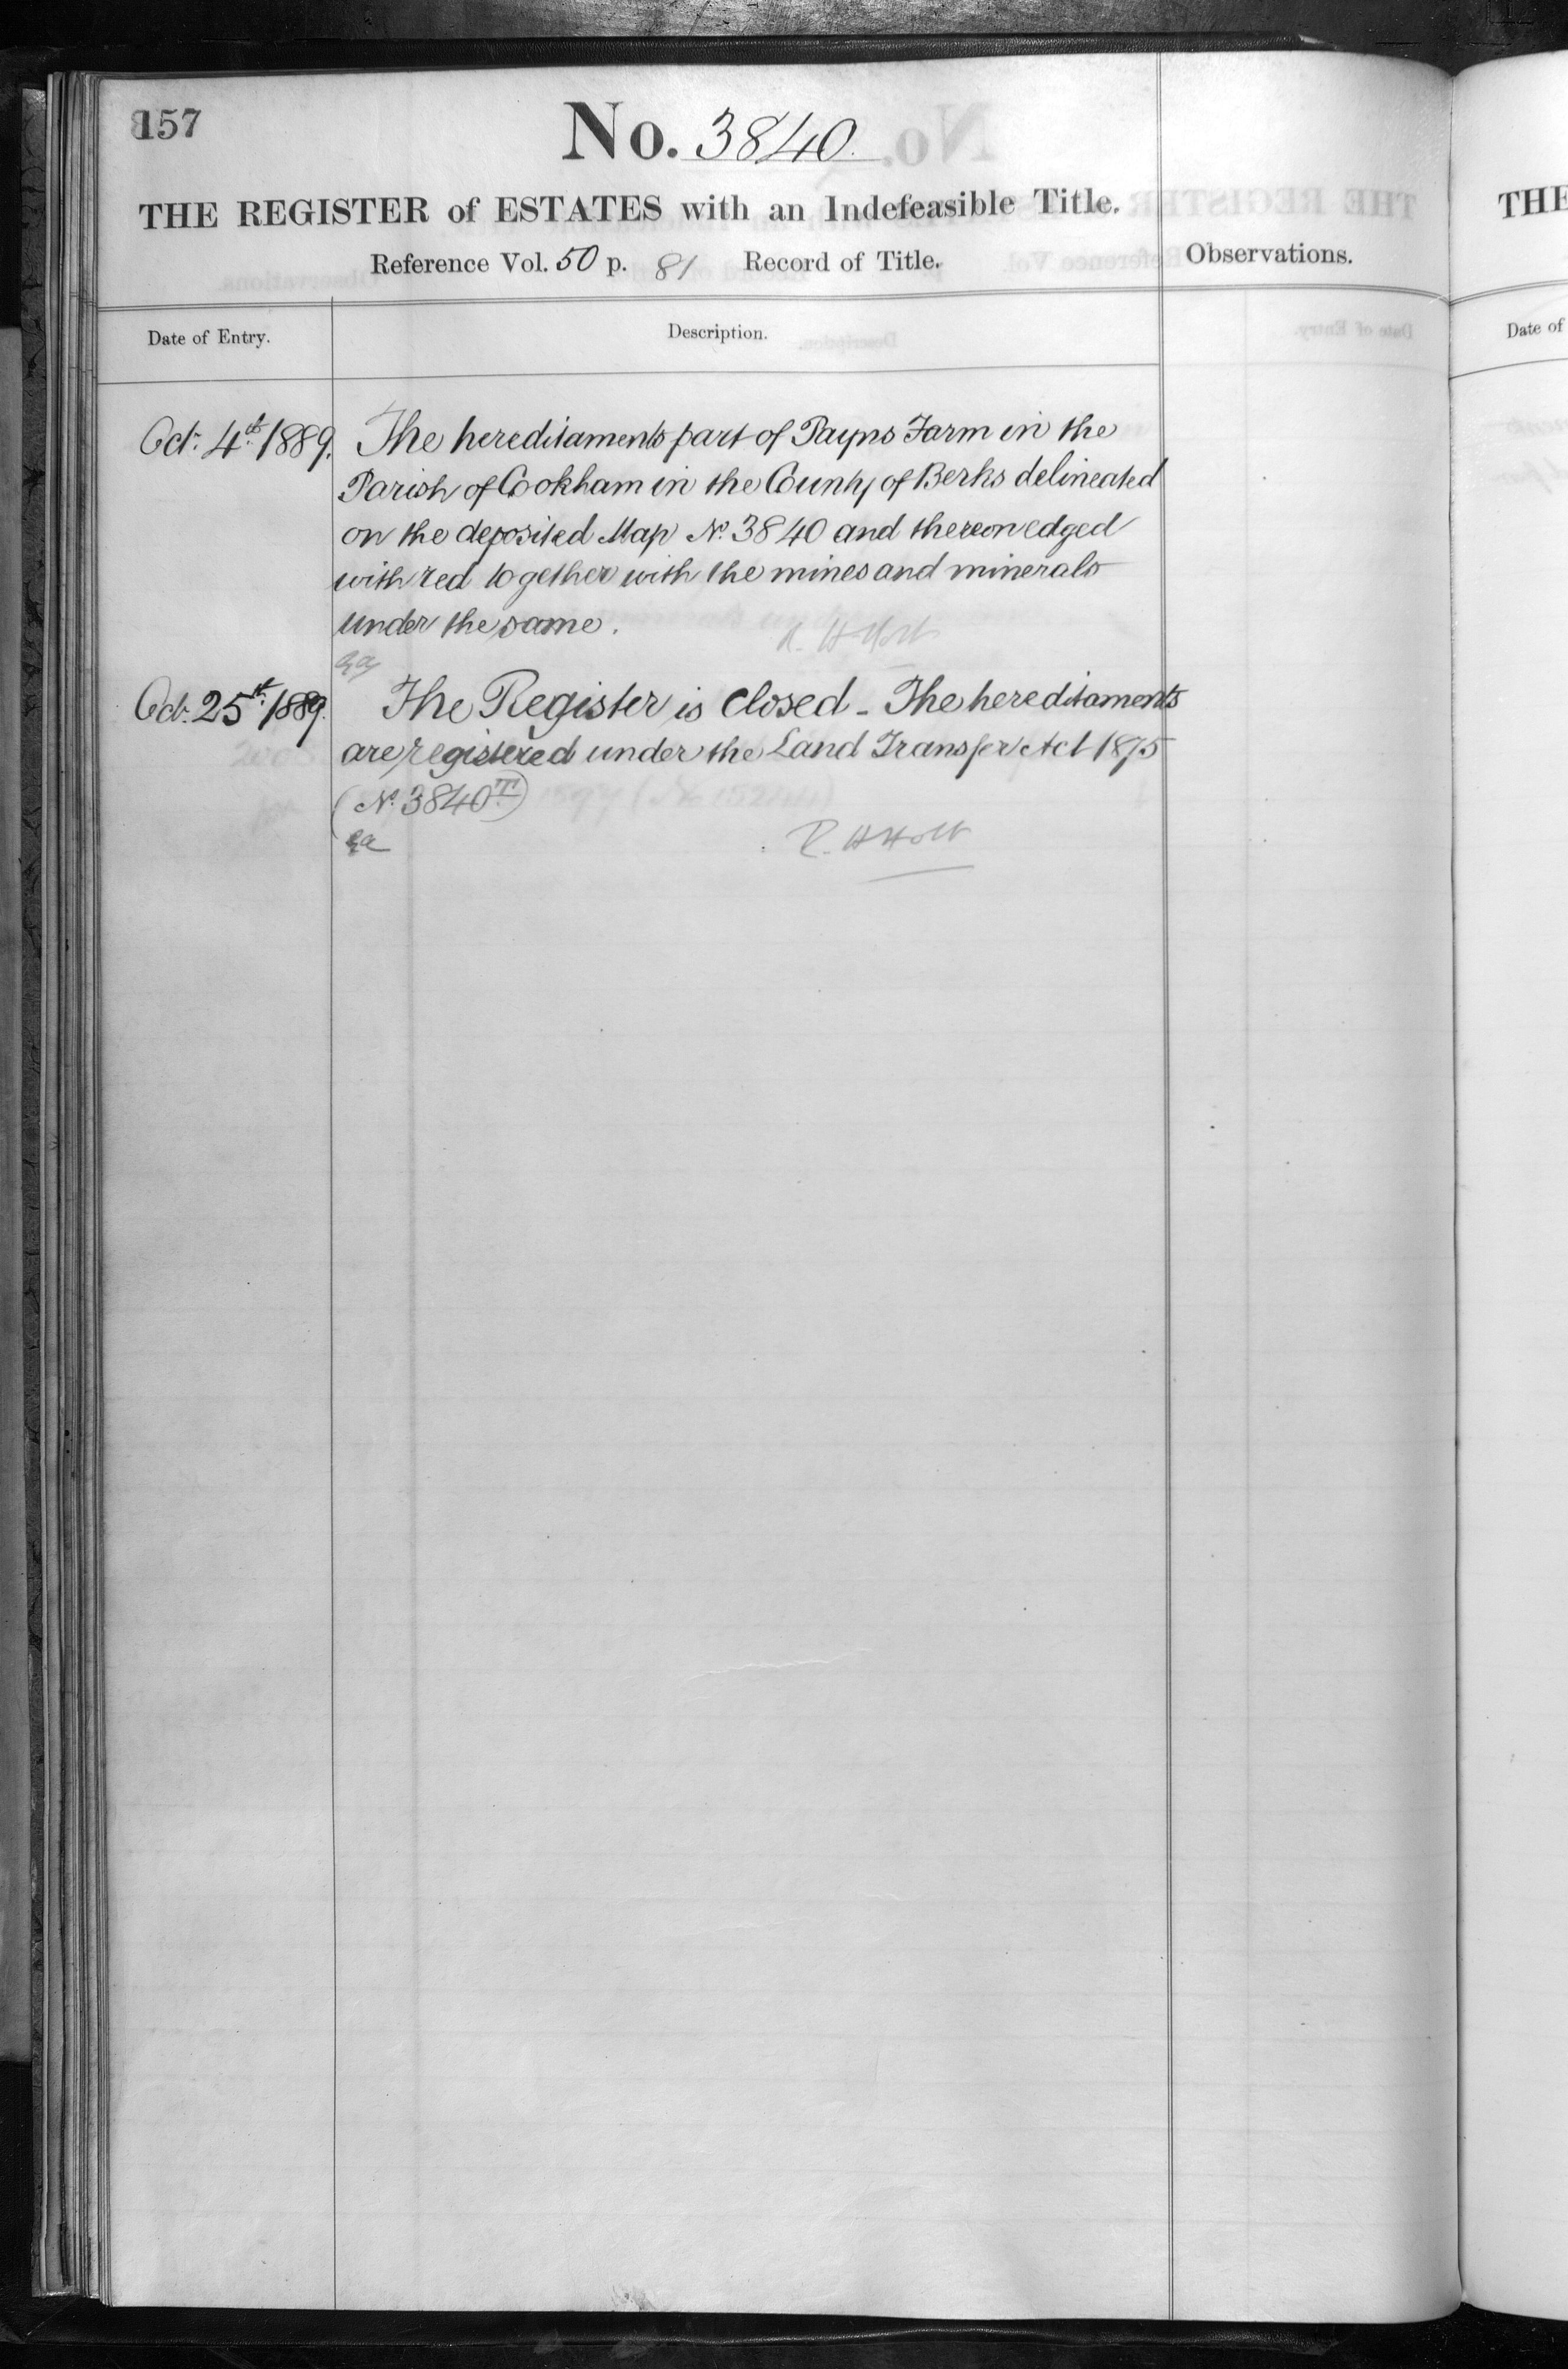 157
No. 3840.
THE REGISTER of ESTATES with an Indefeasible Title.
Reference Vol. 50 p. 81 Record of Title.
Observations.
Date of Entry.
Description.
Oct. 4th 1889. The hereditaments part of Payns Farm in the
Parish of Cookham in the County of Berks delineated
on the deposited Map No. 3840 and thereon edged
with red together with the mines and minerals
under the same.
R. H Holt
Oct. 25th 1889. The Register is closed - The hereditaments
are registered under the Land Transfer Act 1875
(No. 3840T)
R. H Holt
THE
Date of